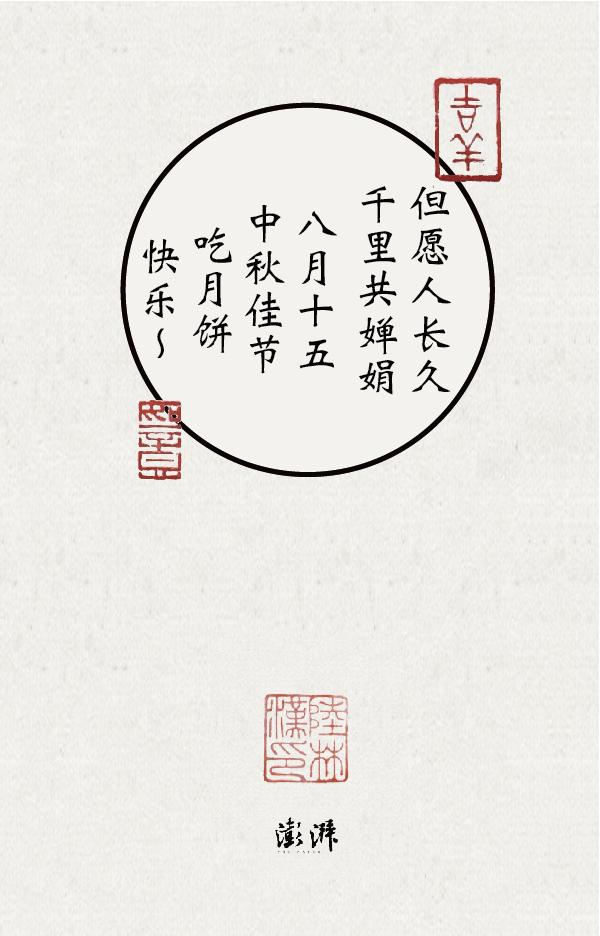 吉羊
但愿人长久
千里共婵娟
八月十五
中秋佳节
吃月饼
快乐～
如意
陸林
漢印
澎湃